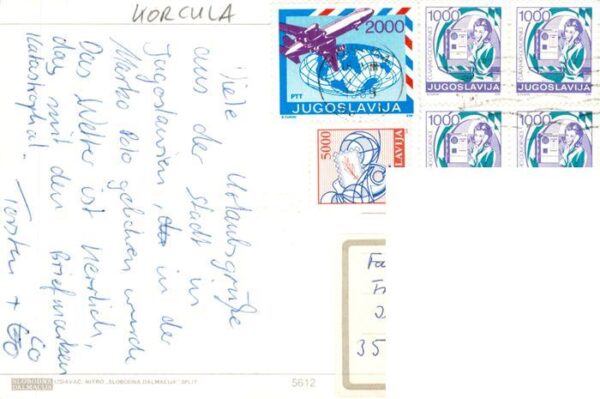 KORČULA
Viele Urlaubsgrüße
aus der Stadt in
Jugoslawien, in der
Marko Polo geboren wurde
Das Wetter ist herrlich,
das mit den Briefmarken
katastrophal. Torsten + Co
2000
PTT
JUGOSLAVIJA
1000
1000
1000
1000
50000
LAVIJA
Fa
F
2
35
SLOBODNA
DALMACIJA
IZDAVAČ: NITRO „SLOBODNA DALMACIJA" SPLIT
5612